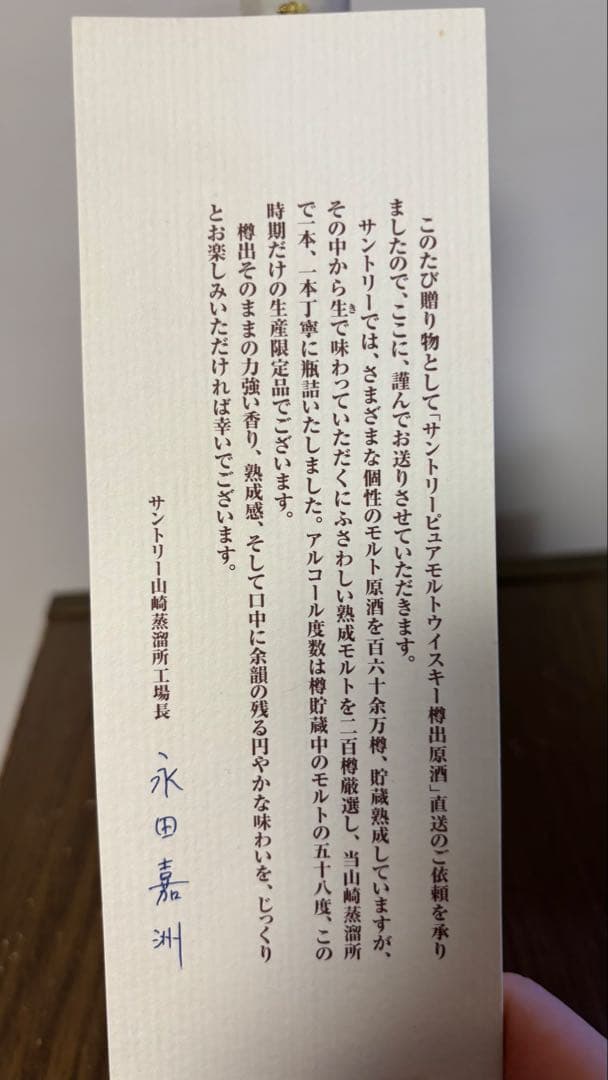 このたび贈り物として「サントリーピュアモルトウイスキー樽出原酒」直送のご依頼を承り
ましたので、ここに、謹んでお送りさせていただきます。
サントリーでは、さまざまな個性のモルト原酒を百六十余万樽、貯蔵熟成していますが、
その中から生きで味わっていただくにふさわしい熟成モルトを二百樽厳選し、当山崎蒸溜所
で一本、一本丁寧に瓶詰いたしました。アルコール度数は樽貯蔵中のモルトの五十八度、この
時期だけの生産限定品でございます。
樽出そのままの力強い香り、熟成感、そして口中に余韻の残る円やかな味わいを、じっくり
とお楽しみいただければ幸いでございます。
サントリー山崎蒸溜所工場長 永田嘉洲